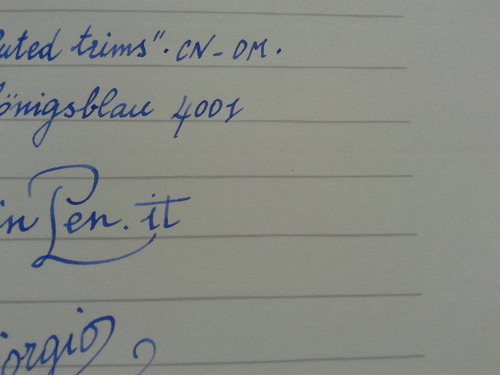 uted trims". CN-OM.
önigsblau 4001
in Pen.it
orgio